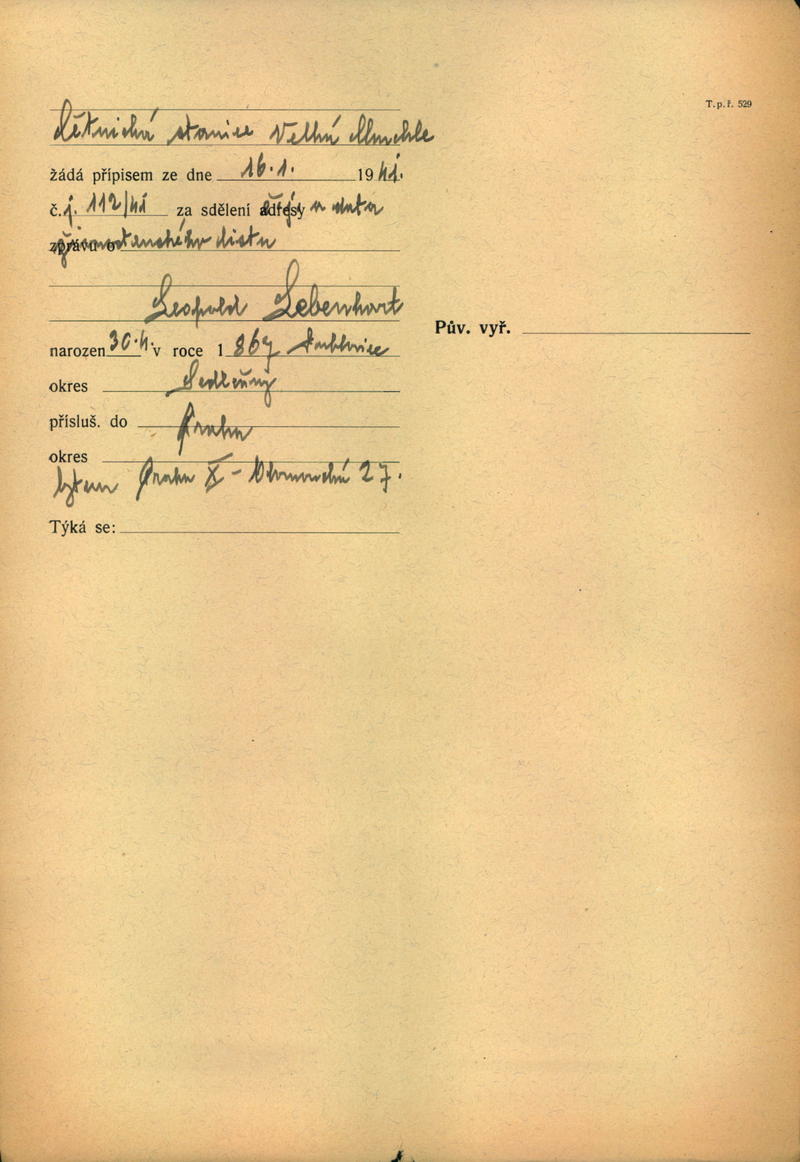 T. p. ř. 529
četnická stanice Velká Chuchle
žádá přípisem ze dne 16.1. 1941.
č. j. 112/41 za sdělení čísla a data
občanského listu
Leopold Lebenhart
narozen 30.4. v roce 1 867
okres Sedlčany
přísluš. do Praha
okres
bytem Praha X - 27.
Týká se:
Pův. vyř.